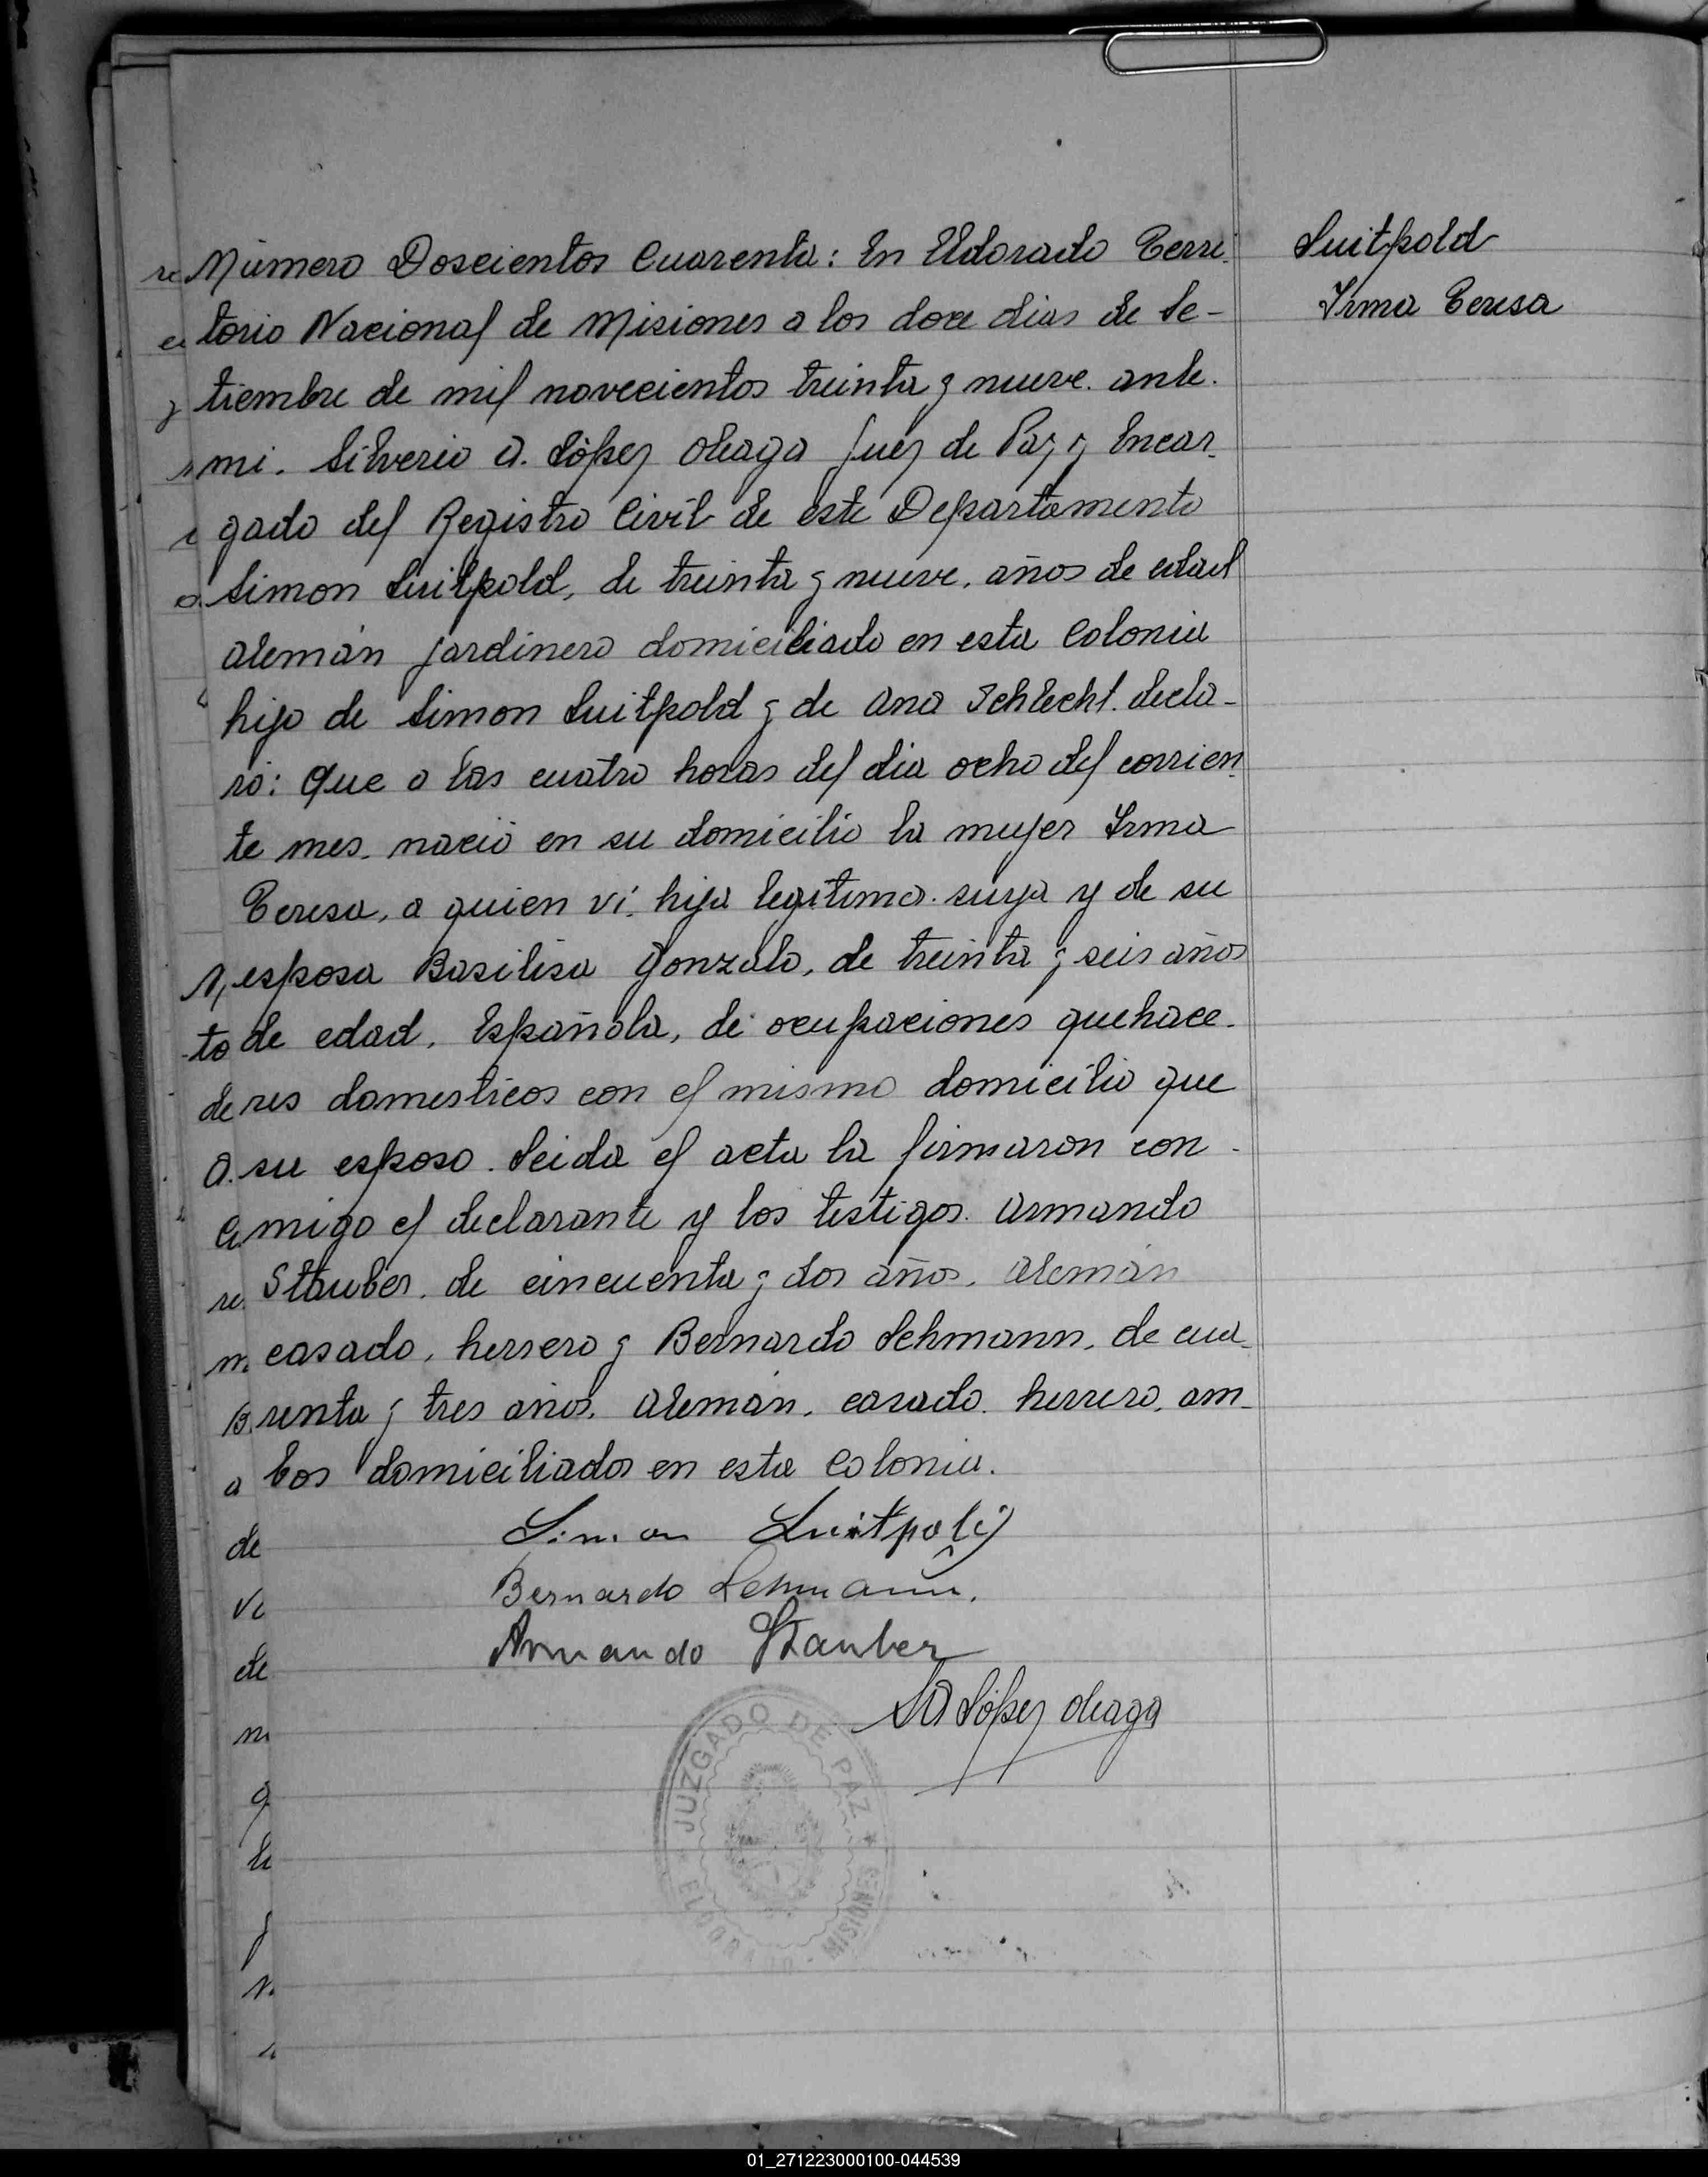 Número Doscientos Cuarenta: En Eldorado Terri-
torio Nacional de Misiones a los doce dias de Se-
tiembre de mil novecientos treinta y nueve. ante.
mi. Silverio A. López Oleaga Juez de Paz y Encar-
gado del Registro Civil de este Departamento
Simon Luitpold, de treinta y nueve, años de edad
Alemán jardinero domiciliado en esta Colonia
hijo de Simon Luitpold y de Ana Schlecht. decla-
ró: Que a las cuatro horas del dia ocho del corrien-
te mes. nació en su domicilio la mujer Irma
Teresa, a quien vi. hija legitima. suya y de su
esposa Basilisa Gonzalo, de treinta y seis años
de edad, Española, de ocupaciones quehace-
res domesticos con el mismo domicilio que
su esposo. Leida el acta la firmaron con-
migo el declarante y los testigos. Armando
Stauber. de cincuenta y dos años. Alemán
casado, herrero y Bernardo Lehmann, de cua-
renta y tres años. Alemán. casado. herrero, am-
bos domiciliados en esta Colonia.
Simon Luitpold
Bernardo Lehmann.
Armando Stauber
SA López Oleaga
JUZGADO DE PAZ * ELDORADO - MISIONES
Luitpold
Irma Teresa
re
de
vi
de
01_271223000100-044539